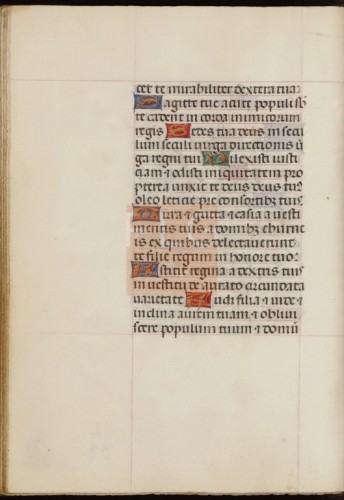 cet te mirabiliter dextera tua
Sagitte tue acute populi sb
te cadent in corda inimicorum
regis Sedes tua deus in secu
lum seculi virga directionis v̄
ga regni tui Dilexisti iusti
ciam et odisti iniquitatem pro
pterea unxit te deus deus tuꝰ
oleo leticie pre consortibꝫ tuis
Mirra et gutta et casia a vesti
mentis tuis a domibꝫ eburne
is ex quibus delectaverunt
te filie regum in honore tuo
Astitit regina a dextris tuis
in vestitu de aurato circundata
varietate Audi filia et vide et
inclina aurem tuam et oblivi
scere populum tuum et domū